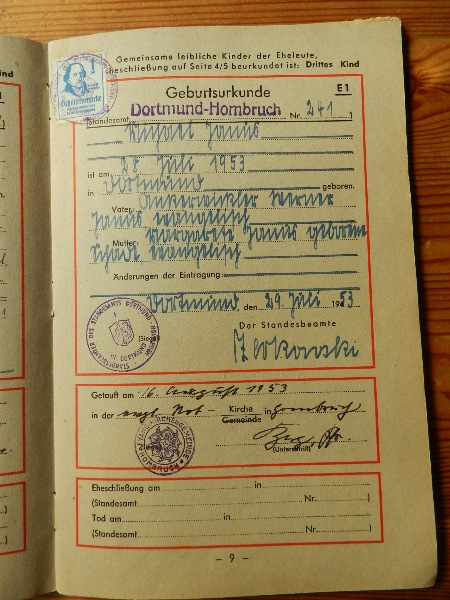 Gemeinsame leibliche Kinder der Eheleute,
Eheschließung auf Seite 4/5 beurkundet ist: Drittes Kind
Kind
Geburtsurkunde E1
Dortmund-Hombruch
(Standesamt Nr. 241)
Michael Janus
ist am 28. Juli 1953
in Dortmund geboren.
Vater: Ankerwickler Werner
Janus evangelisch
Mutter: Margarete Janus geborene
Schade evangelisch
Änderungen der Eintragung:
Dortmund, den 29. Juli 1953
(Siegel) Der Standesbeamte
Getauft am 16. August 1953
in der evgl. Not- Kirche in Hombruch
Gemeinde
(Siegel) (Unterschrift)
Eheschließung am in
(Standesamt Nr. )
Tod am in
(Standesamt Nr. )
– 9 –